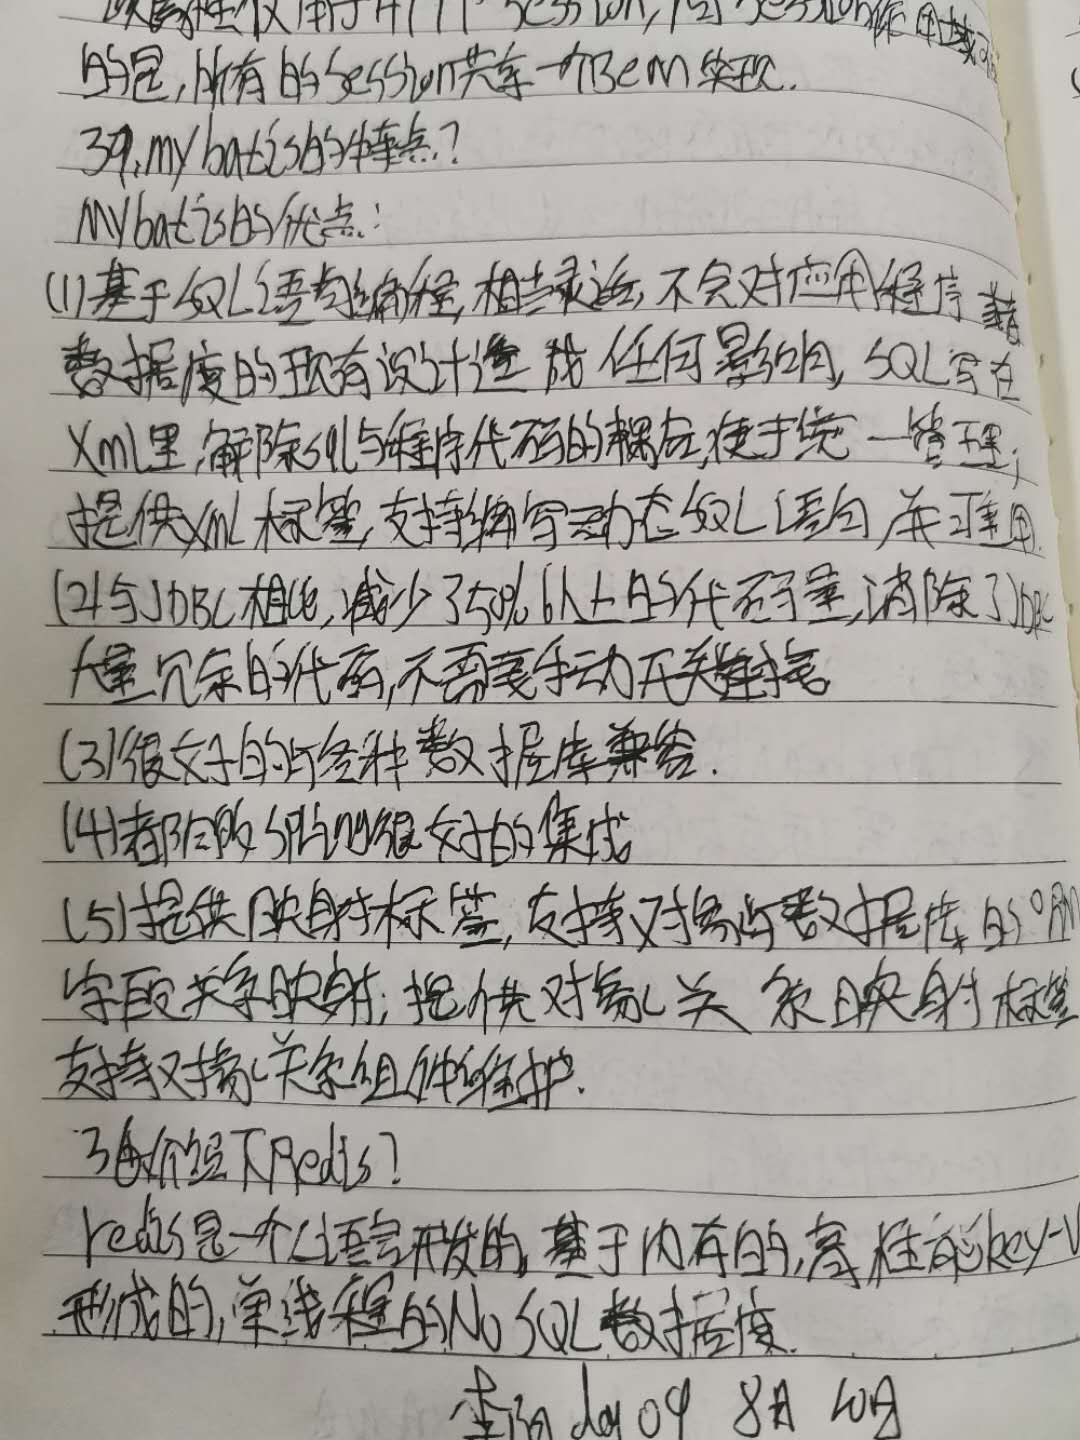 该属性仅用于HTTP Session,同Session作用域不
的是,所有的Session共享一个Bean实现.
39.mybatis的特点?
Mybatis的优点:
(1)基于SQL语句编程,相当灵活,不会对应用程序或者
数据库的现有设计造成任何影响,SQL写在
Xml里,解除sql与程序代码的耦合,便于统一管理;
提供Xml标签,支持编写动态SQL语句,并可重用.
(2)与JDBC相比,减少了50%以上的代码量,消除了JDBC
大量冗余的代码,不需要手动开关连接
(3)很好的与各种数据库兼容.
(4)都能够Spring很好的集成
(5)提供映射标签,支持对象与数据库的ORM
字段关系映射;提供对象关系映射标签
支持对象关系组件维护.
介绍下Redis?
redis是一个C语言开发的,基于内存的,高性能key-v
形成的,单线程的NoSQL数据库.
day09 8月10日